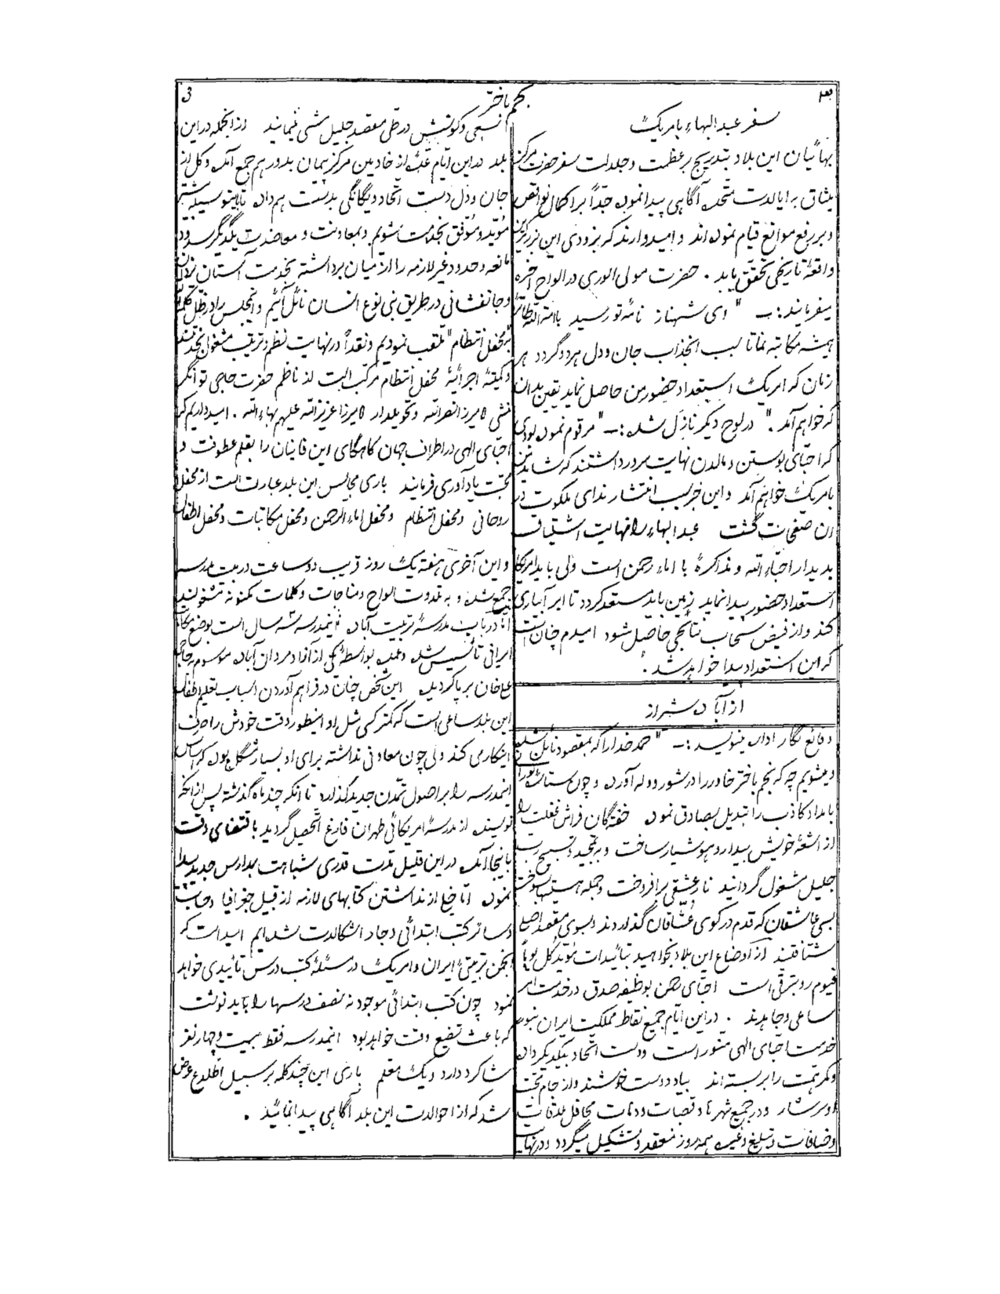 ۳
نجم باختر
3
سفر عبدالبهاء بامریک
بهائیان این بلاد بتدریج بر عظمت و جلالت سفر حضرت مرکز
میثاق به ایالات متحده آگاهی پیدا نموده جدّاً بر اکمال نواقص
و بر رفع موانع قیام نموده اند و امیدوارند که بزودی این
واقعهٔ تاریخی تحقق یابد . حضرت مولی الوری در الواح اخیره
میفرمایند :— " ای شهناز نامهٔ تو رسید یا امة الله
همیشه مکاتبه نما تا سبب انجذاب جان و دل هر دو گردد هر
زمان که امریک استعداد حضور من حاصل نماید یقین بدان
که خواهم آمد ." در لوح دیگر نازل شده :— " مرقوم نموده بودی
که احبّای بوستن و مالدن نهایت سرور داشتند که شاید
بامریک خواهم آمد و این خبر سبب انتشار ندای ملکوت در
آن صفحات گشت عبدالبهاء را نهایت اشتیاق
بدیدار احبّاء الله و مذاکرهٔ با اماء رحمن است ولی باید امریکا
استعداد حضور پیدا نماید زمین باید مستعد گردد تا ابر آبیاری
کند و از فیض سحاب نتائجی حاصل شود امیدم چنان است
که این استعداد پیدا خواهد شد .
از آباده شیراز
وقایع نگار آباده مینویسد :— " حمد خدا را که بمقصود نائل شدیم
و میشویم چه که نجم باختر خاور را در شور و وله آورده و چون
بامداد کاذب را تبدیل بصادق نموده خفتگان فراش غفلت را
از اشعهٔ خویش بیدار و هوشیار ساخت و بتمجید و تسبیح رب
جلیل مشغول گردانید نار عشقی بر افروخت و جمله هستیها بسوخت
بسی عاشقان که قدم در کوی عشّاقان گذاردند و بسوی مقصد اصلی
شتافتند از اوضاع این بلاد بخواهید بتائیدات مؤید کل یوماً
فیوم رو بترقی است احبّای رحمن بوظیفه صدق در خدمت امر
ساعی و جاهدند . در این ایام جمیع نقاط مملکت ایران بنور
خدمت احبّای الهی منور است و دست اتحاد بیکدیگر داده
و کمر همّت را بر بسته اند بیاد دوست خوشند و از جام محبّت
او سرشار و در جمیع شهرها و قصبات و دهات محافل ملاقات
و ضیافات و تبلیغ و غیره همه روزه منعقد و تشکیل میگردد و در نهایت
سعی و کوشش در طی مقصد جلیل مشی مینمایند از آنجمله در این
بلد در این ایام عده از خادمین مرکز پیمان بدور هم جمع آمده و کل از
جان و دل دست اتحاد و یگانگی بدست هم داده تا باینوسیله
مؤید و موفق بخدمت شویم و بمعاونت و معاضدت یکدیگر سدود
مانعه و حدود غیر لازمه را از میان برداشته بخدمت آستان یزدان
و جانفشانی در طریق بنی نوع انسان نائل آئیم و انجمن را در ظل کلمه
"محفل انتظام" ملقب نمودیم و نقداً در نهایت نظم و ترتیب مشغول بخدمتند
و کمیتهٔ اجرائیهٔ محفل انتظام مرکب است از ناظم حضرت حاجی توانگر
منشی میرزا نصرالله و تحویلدار میرزا عزیزالله علیهم بهاءالله . امیدواریم که
احبّای الهی در اطراف جهان گاهگاهی این فانیان را بقلم عطوفت و
محبّت یادآوری فرمایند باری مجالس این بلد عبارت است از محفل
روحانی و محفل انتظام و محفل اماء الرحمن و محفل مکاتبات و محفل اطفال
و این آخری هفته یک روز قریب دو ساعت در بیت مدرسه
جمع شده و به تلاوت الواح و مناجات و کلمات مکنونه مشغولند
اما در باب مدرسهٔ تربیت آباده اینمدرسه سه سال است بوضع مکاتب
ایرانی تأسیس شده و بلکه بواسطهٔ یکی از آزاد مردان آباده موسوم بحاجی
علیخان بر پا گردیده این شخص چنان در فراهم آوردن اسباب تعلیم اطفال
این بلد ساعی است که کمتر کسی مثل او اینطور وقت خودش را صرف
اینکاری کند ولی چون معاونی نداشته برای او بسیار مشکل بوده که اساس
اینمدرسه را بر اصول تمدن جدید گذارد تا آنکه چند ماه گذشته پس از آنکه
نویسنده از مدرسهٔ امریکائی طهران فارغ التحصیل گردید باقتضای وقت
باینجا آمده در این قلیل مدّت قدری شباهت بمدارس جدیده پیدا
نموده اما خیلی از نداشتن کتابهای لازمه از قبیل جغرافیا و حساب
و سائر کتب ابتدائی دچار اشکالات شده ایم امید است که
انجمن تربیتی ایران و امریک در مسئلهٔ کتب درسی تائیدی خواهد
نمود چون کتب ابتدائی موجود نه نصف درسها را باید نوشت
که باعث تضییع وقت خواهد بود اینمدرسه فقط بیست و چهار نفر
شاگرد دارد و یک معلم باری این چند کلمه بر سبیل اطّلاع عرض
شد که از احوالات این بلد آگاهی پیدا نمائید .